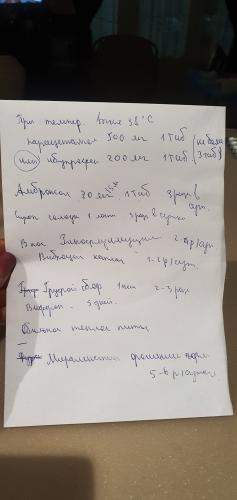 При темпер. выше 38°С
парацетамол 500 мг 1 таб (не более
или ибупрофен 200 мг 1 таб 3 таб)
Амброксол 30 мг 1 таб 3 раз в
Сироп солодки 1 лож 3 раз в сутки
В нос 2-4 р/сут
капли 1-2 р/сут.
Грудной сбор 1 пак 2-3 раз
5 дней.
Обильное теплое питье
Мирамистин орошение горла
5-6 р/сутки